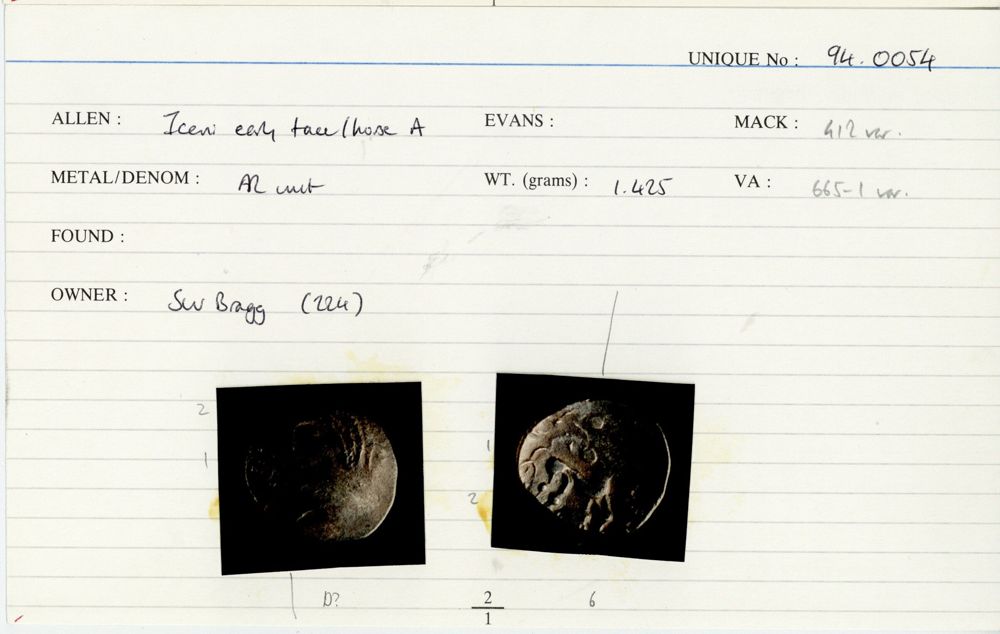 UNIQUE No : 94.0054
ALLEN : Iceni early face/horse A EVANS : MACK : 412 var.
METAL/DENOM : AR unit WT. (grams) : 1.425 VA : 665-1 var.
FOUND :
OWNER : SW Bragg (224)
2
1
1
2
D? 2 6
1